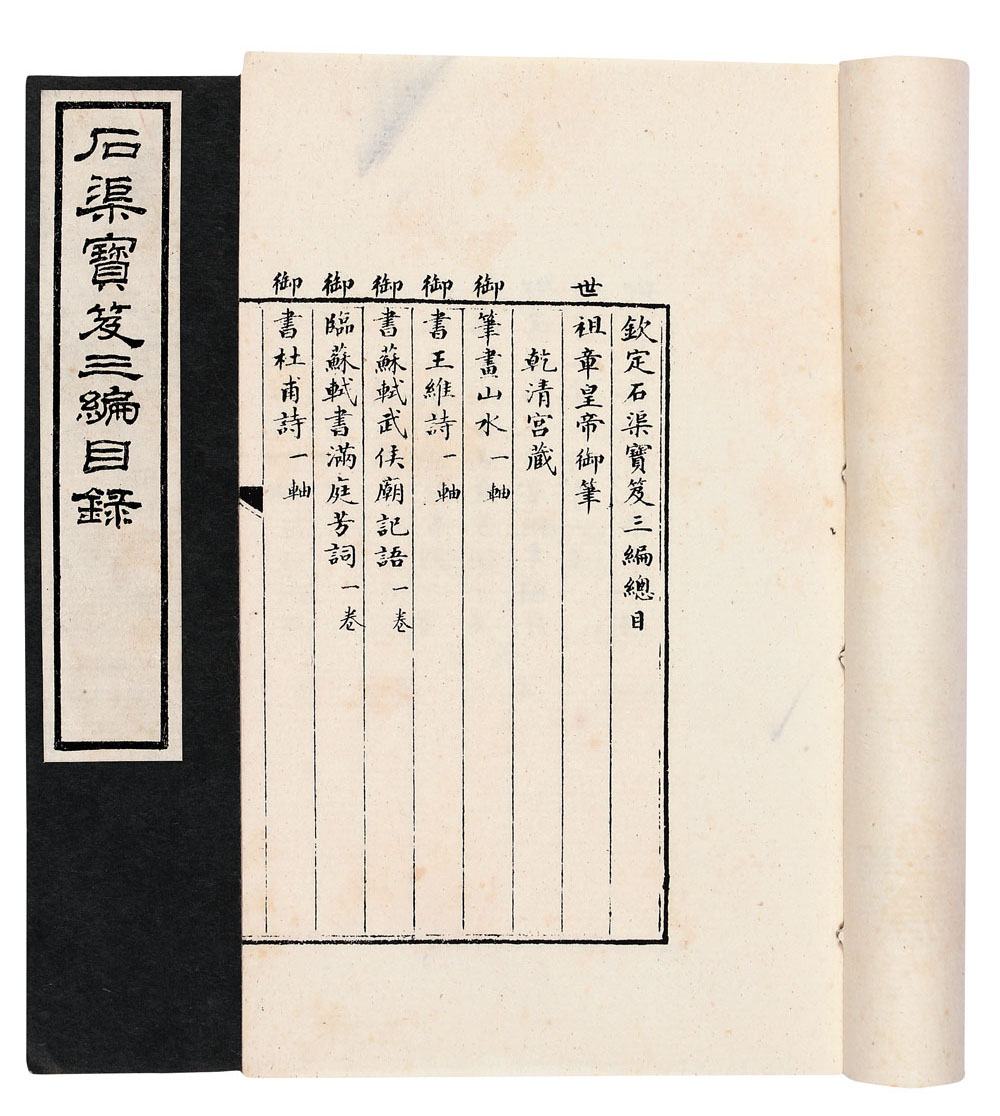 石渠寶笈三編目録
欽定石渠寶笈三編總目
世祖章皇帝御筆
乾清宮藏
御筆畫山水一軸
御書王維詩一軸
御書蘇軾武侯廟記語一卷
御臨蘇軾書滿庭芳詞一卷
御書杜甫詩一軸